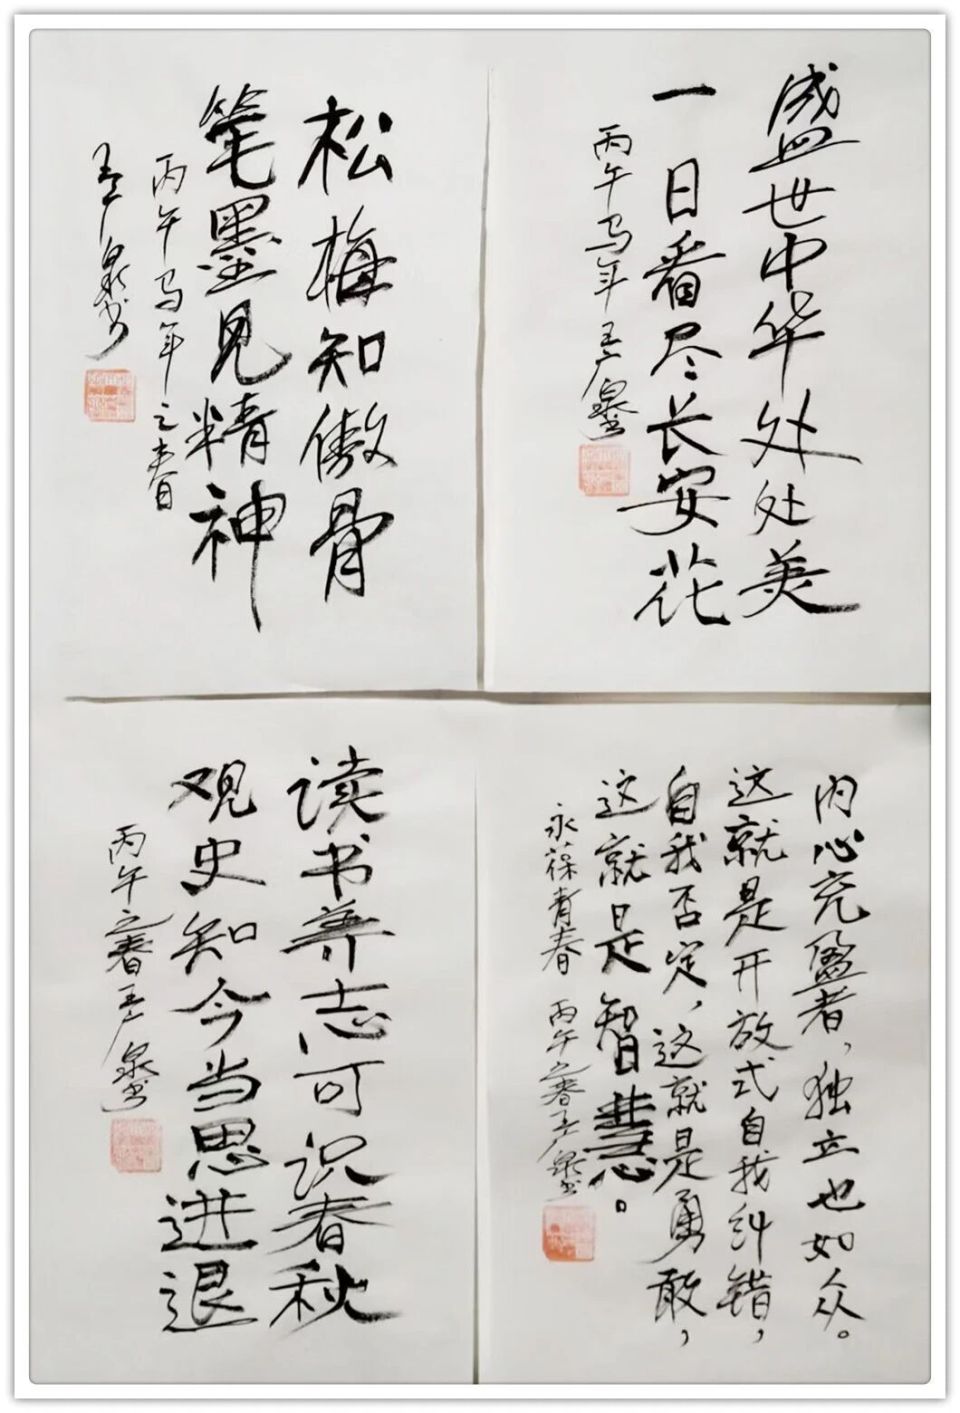 盛世中华处处美
一日看尽长安花
丙午马年王广泉书
松梅知傲骨
笔墨见精神
丙午马年之春
王广泉书
内心充盈者,独立也如众。
这就是开放式自我纠错,
自我否定,这就是勇敢,
这就是智慧。
永葆青春 丙午之春王广泉书
读书养志可识春秋
观史知今当思进退
丙午之春王广泉书